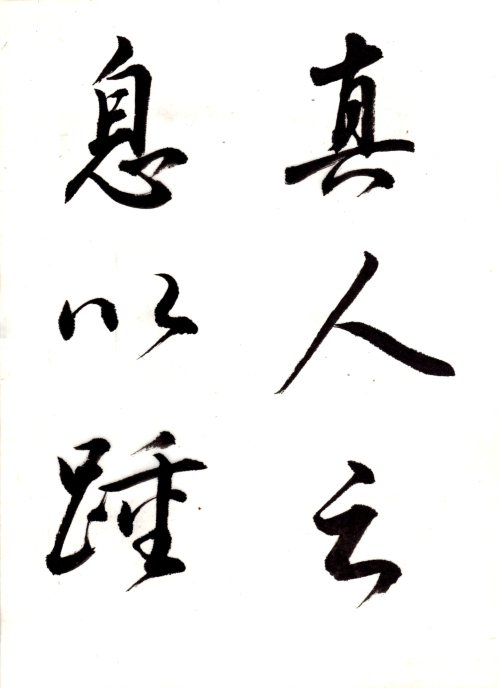 真人之
息以踵